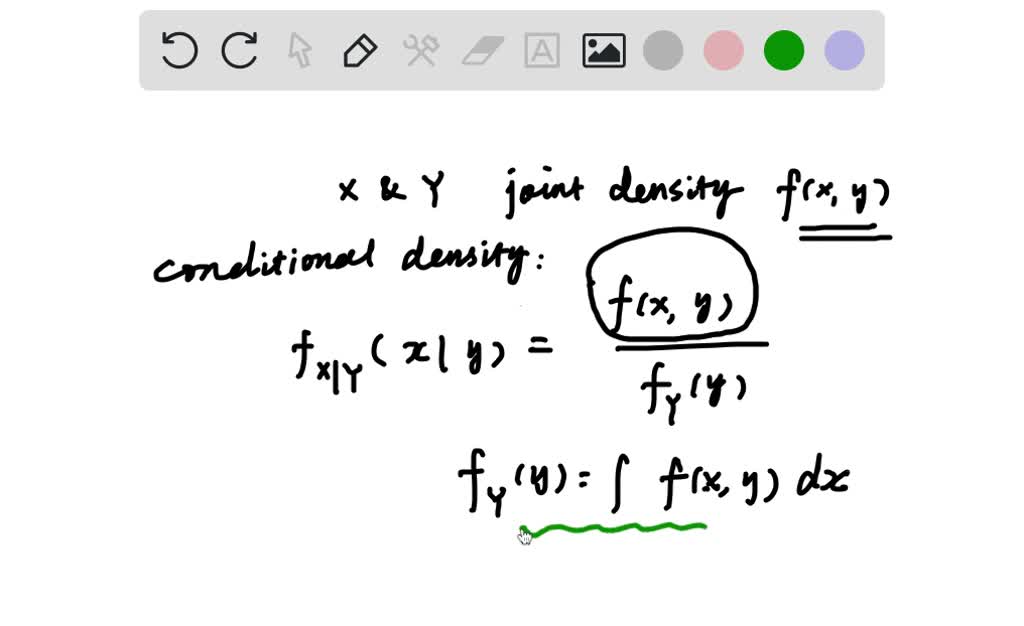 x & Y joint density f(x, y)
conditional density:
f_{X|Y}(x|y) = \frac{f(x, y)}{f_Y(y)}
f_Y(y) = ∫ f(x, y) dx